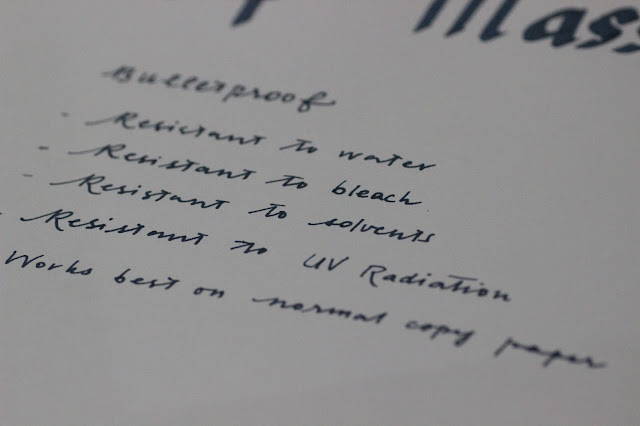 Mass
Bulletproof
- Resistant to water
- Resistant to bleach
- Resistant to solvents
- Resistant to UV Radiation
Works best on normal copy paper